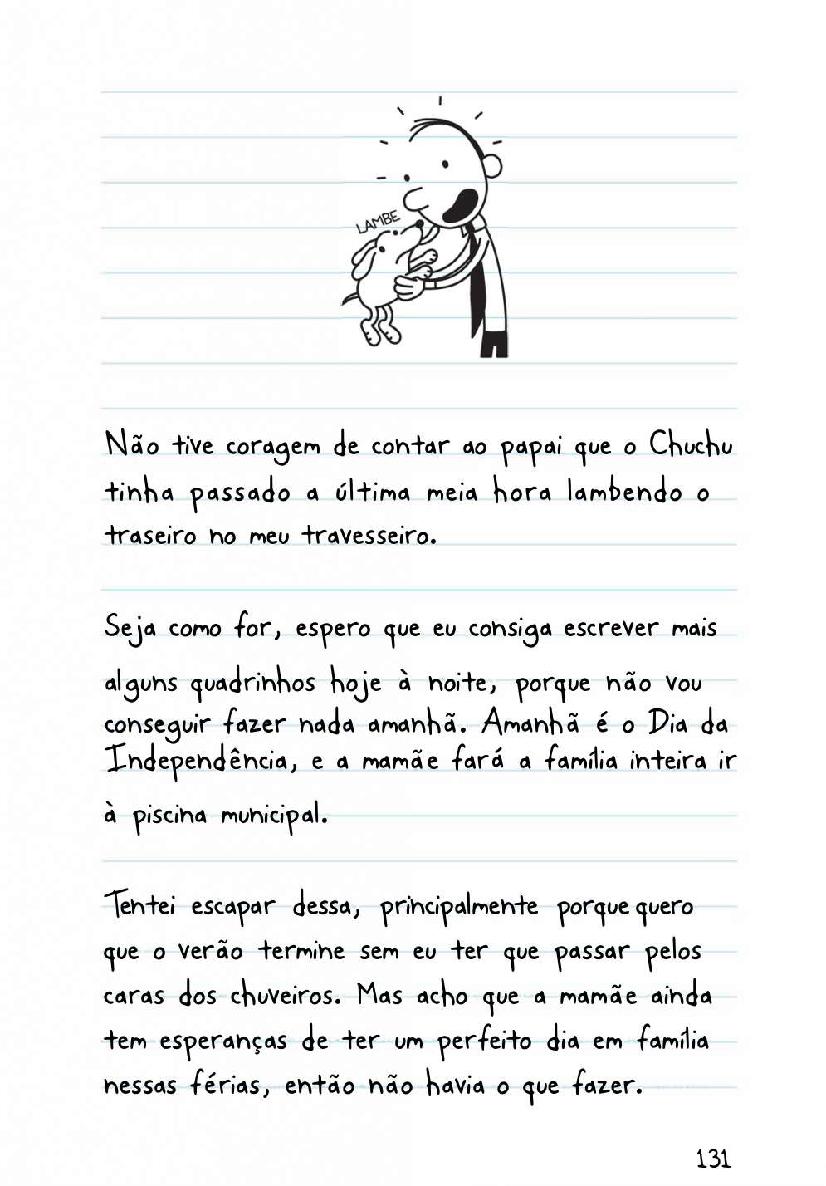 LAMBE
Não tive coragem de contar ao papai que o Chuchu
tinha passado a última meia hora lambendo o
traseiro no meu travesseiro.
Seja como for, espero que eu consiga escrever mais
alguns quadrinhos hoje à noite, porque não vou
conseguir fazer nada amanhã. Amanhã é o Dia da
Independência, e a mamãe fará a família inteira ir
à piscina municipal.
Tentei escapar dessa, principalmente porque quero
que o verão termine sem eu ter que passar pelos
caras dos chuveiros. Mas acho que a mamãe ainda
tem esperanças de ter um perfeito dia em família
nessas férias, então não havia o que fazer.
131